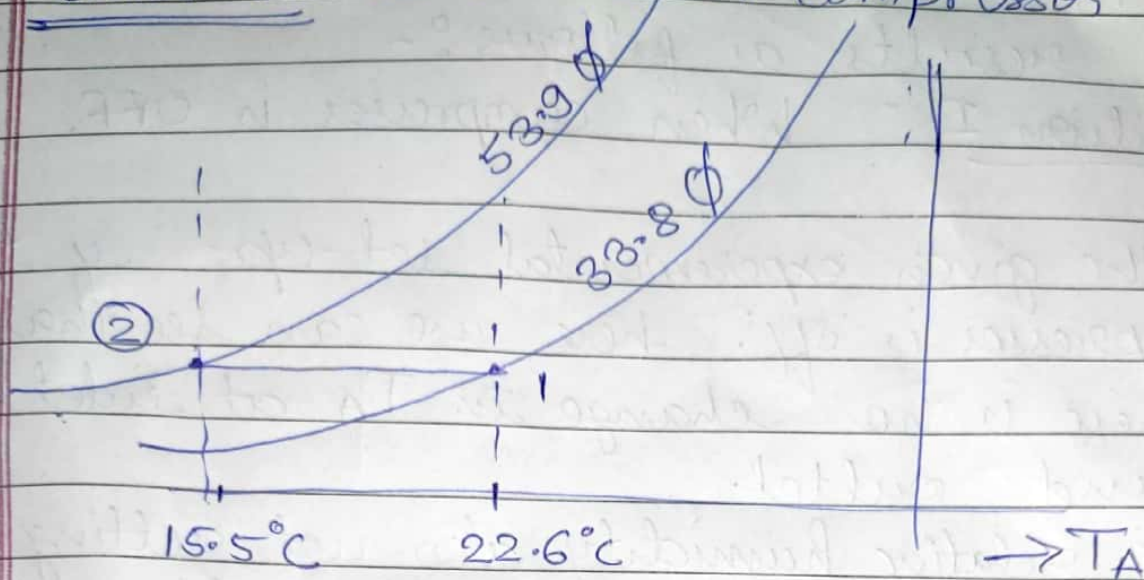 53.9 ϕ
33.8 ϕ
②
1
15.5°C 22.6°C → TA